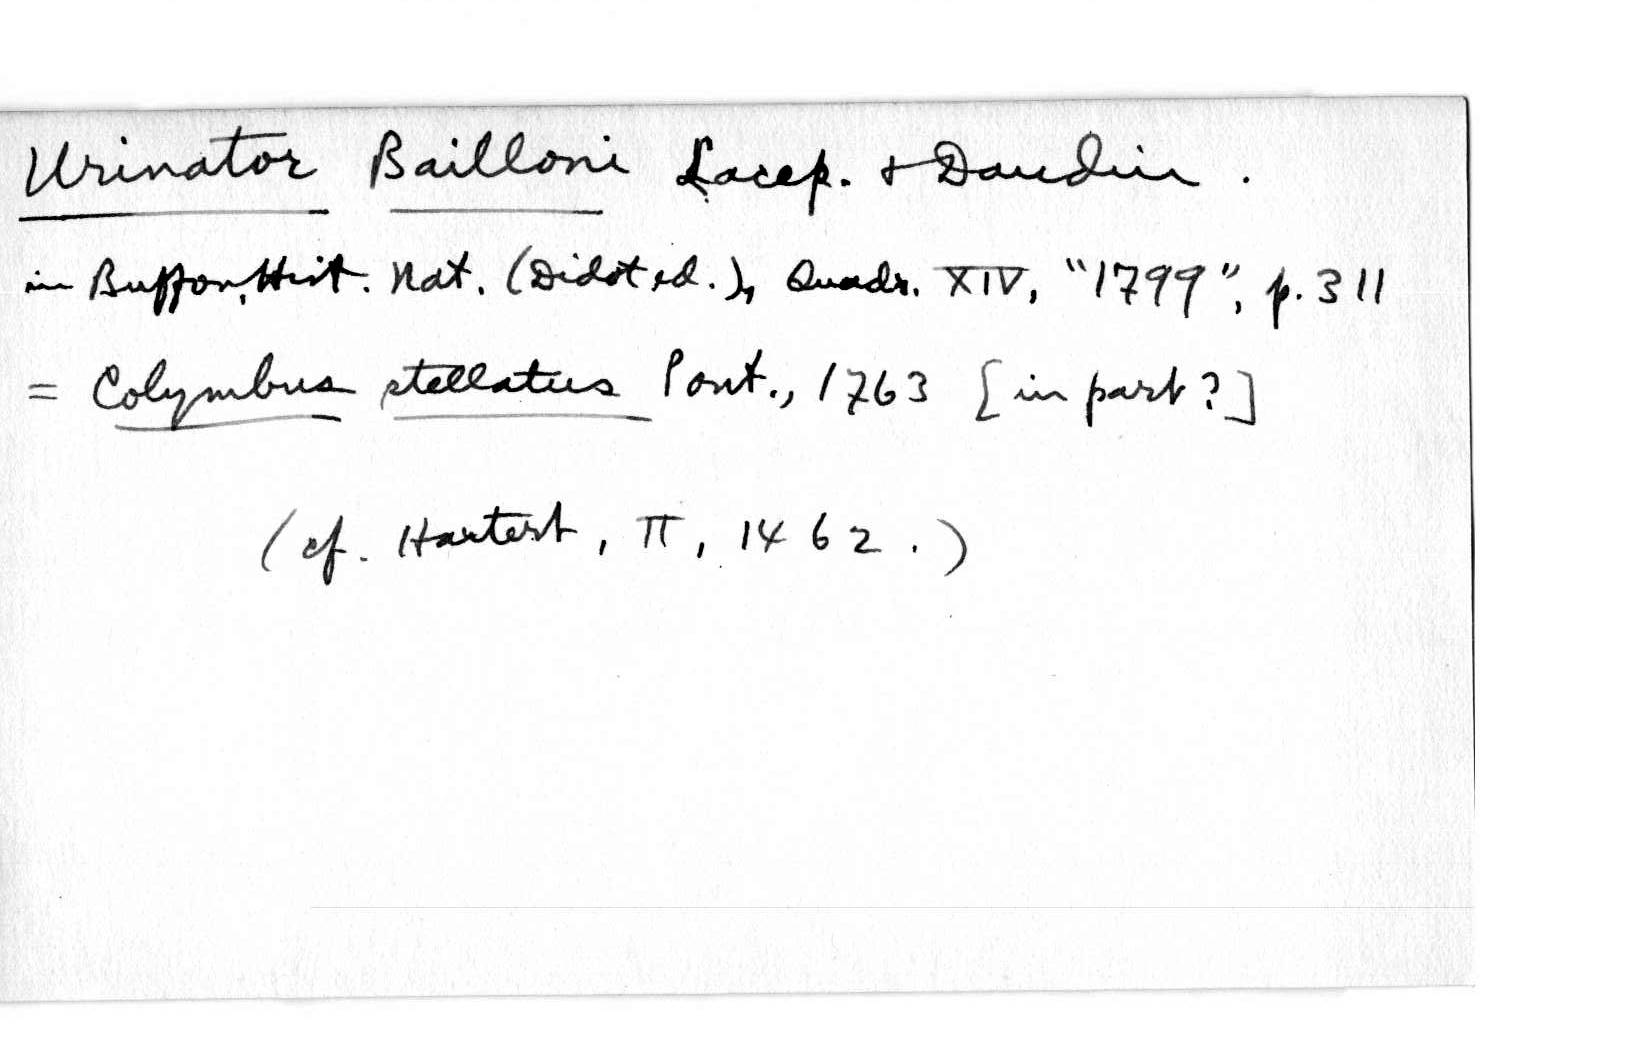 Urinator Bailloni Lacep. & Daudin.
in Buffon, Hist. Nat. (Didot ed.), Quadr. XIV, "1799", p. 311
= Colymbus stellatus Pont., 1763 [in part?]
(cf. Hartert, II, 1462.)